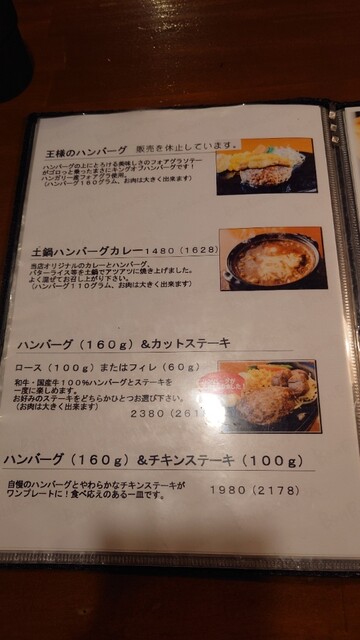 王様のハンバーグ 販売を休止しています。
ハンバーグの上にとろける美味しさのフォアグラソテー
がゴロっと乗ったまさにキングオブハンバーグです！
ハンガリー産フォアグラ使用。
（ハンバーグ160グラム、お肉は大きく出来ます）
土鍋ハンバーグカレー1480（1628）
当店オリジナルのカレーとハンバーグ、
バターライス等を土鍋でアツアツに焼き上げました。
よく混ぜてお召し上がり下さい。
（ハンバーグ110グラム、お肉は大きく出来ます）
ハンバーグ（160g）&カットステーキ
ロース（100g）またはフィレ（60g）
和牛・国産牛100%ハンバーグとステーキを
一度に楽しめます。
お好みのステーキをどちらかひとつお選び下さい。
（お肉は大きく出来ます）
2380（261
ハンバーグ（160g）&チキンステーキ（100g）
自慢のハンバーグとやわらかなチキンステーキが
ワンプレートに！食べ応えのある一皿です。
1980（2178）